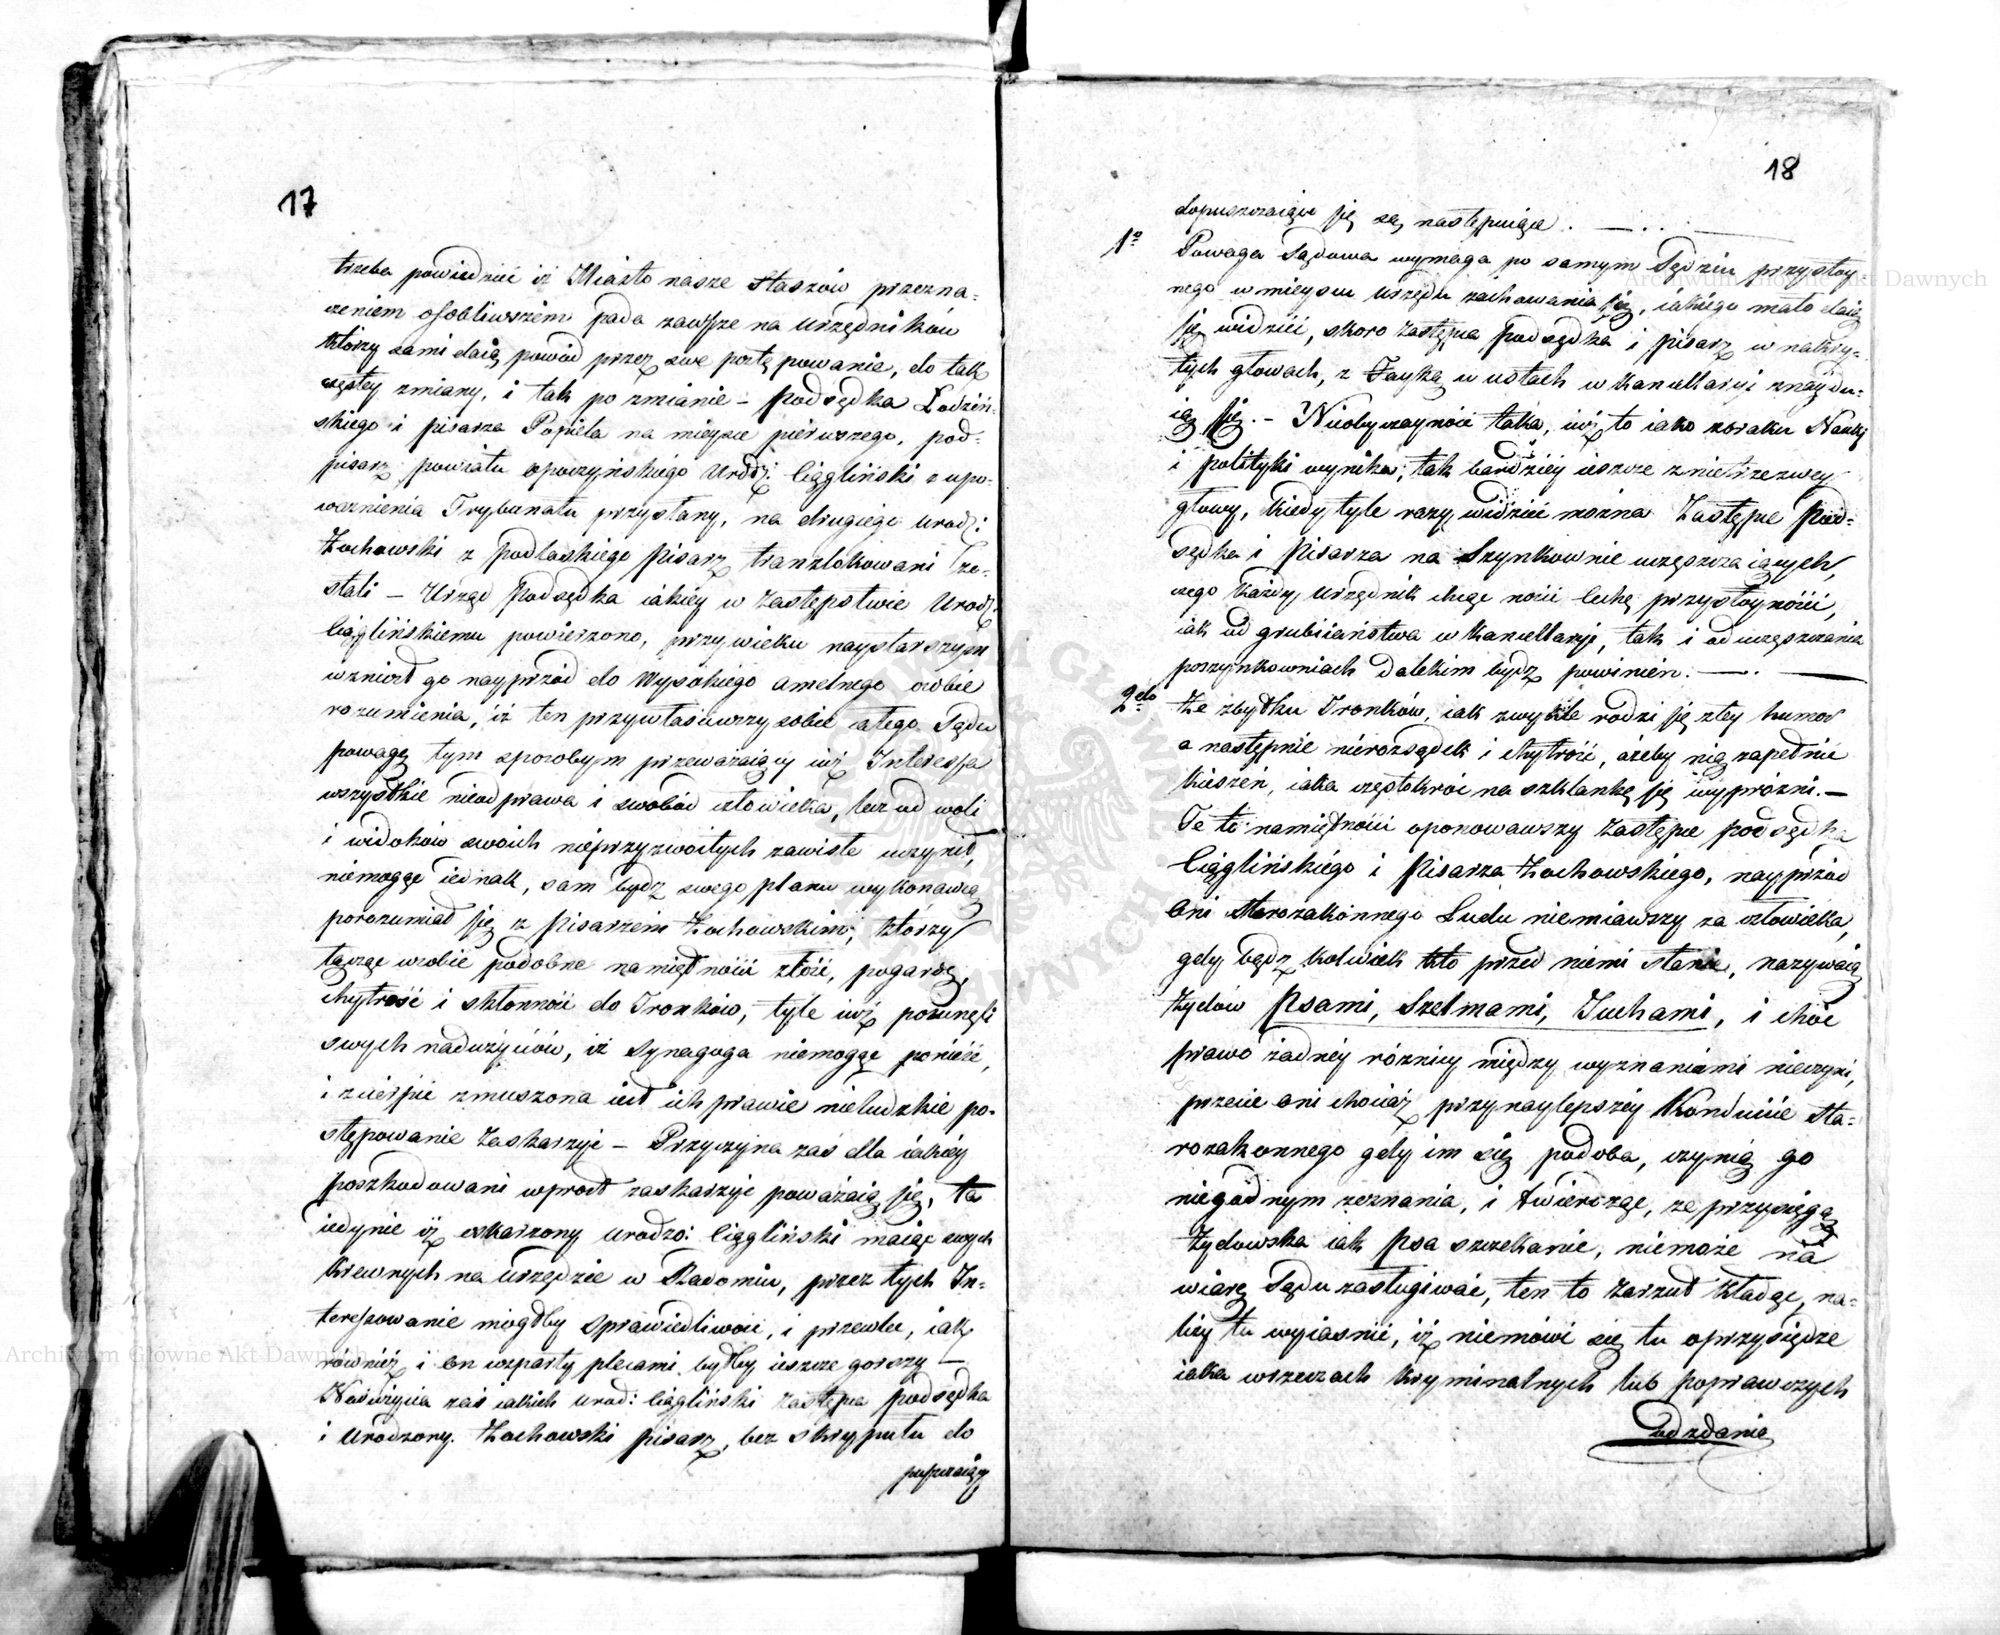 17
trzeba powiedzieć iż Miasto nasze Staszów przezna-
czeniem osobliwszem pada zawsze na Urzędników
którzy sami daią powód przez swe postępowanie, do tak
częstey zmiany, i tak po zmianie – Podsędka Lodziń-
skiego i pisarza Popiela na mieysce pierwszego, pod-
pisarz powiatu opoczyńskiego Urodz: Ciągliński z upo-
ważnienia Trybunału przysłany, na drugiego Urodz:
Żochowski z podlaskiego Pisarz tranzlokowani zo-
stali – Urząd Podsędka iakiey w Zastępstwie Urodz:
Ciąglińskiemu powierzono, przy wieku naystarszym
wzniósł go nayprzód do Wysokiego a melnego o sobie
rozumienia, iż ten przywłaściwszy sobie całego Sądu
powagę tym sposobym przeważaiący iuż Interessa
wszystkie nieod prawa i swobód człowieka, lecz od woli
i widoków swoich nieprzyzwoitych zawisłe uczynił,
niemogąc iednak, sam bydź swego planu wykonawcą
porozumiał się z Pisarzem Żochowskim, którzy
łącząc w sobie podobne namiętności złość, pogardę,
chytrość i skłonność do Tronków, tyle iuż posunęli
swych nadużyciów, iż Synagoga niemogąc ponieść,
i zcierpieć zmuszona iest ich prawie nieludzkie po-
stępowanie Zaskarzyć – Przyczyna zaś dla iakiey
poszkodowani wprost zaskarzyć poważaią się, ta
iedynie iż oskarzony Urodzo: Ciągliński maiąc swych
Krewnych na Urzędzie w Radomiu, przez tych In-
teressowanie mógłby sprawiedliwość, i przewlec, iak
również i on wsparty plecami byłby ieszcze gorszy –
Nadużycia zaś iakich Urod: Ciągliński Zastępca Podsędka
i Urodzony Żochowski pisarz, bez skrypułu do
puszczaiący
18
dopuszczaiące się są następuiące . — . . —
1o Powaga Sądowa wymaga po samym Sędziu przystoy-
nego w mieyscu Urzędu zachowania się, iakiego mało daie
się widzieć, skoro Zastępca Podsędka i pisarz w nakry-
tych głowach, z Fayką w ustach w Kancellaryi znaydu-
ią się. – Nieobyczayność taka, iuż to iako zbraku Nauki
i polityki wynika, tak bardziéy ieszcze z nietrzeźwey
głowy, kiedy tyle razy widzieć można Zastępcę Pod-
sędka i Pisarza na Szynkownie uczęszczaiących,
czego każdy Urzędnik chcąc nosić cechę przystoyności,
iak od grubiiaństwa w Kancellaryi, tak i od uczęszczania
poszynkowniach dalekim bydź powinien. — . —
2do Ze zbytku Tronków, iak zwykle rodzi się zły humor
a następnie nierozsądek i chytrość, ażeby nią zapełnić
Kieszeń, iaka częstokroć na szklankę się wypróżni. –
Te to namiętności opanowawszy Zastępcę podsędka
Ciąglińskiego i Pisarza Żochowskiego, nayprzód
oni Starozakonnego Ludu niemiawszy za człowieka,
gdy bądź kolwiek kto przed niemi stanie, nazywaią
Żydów Psami, Szelmami, Juchami, i choć
prawo żadnéy różnicy między wyznaniami nieczyni,
przecie oni chociaż przynaylepszéy Konduicie Sta-
rozakonnego gdy im się podoba, czynią go
niegodnym zeznania, i twierdząc, że przysięga
Żydowska iak Psa szczekanie, niemoże na
wiarę Sądu zasługiwać, ten to Zarzut kładąc, na-
leży tu wyiasnić, iż niemówi się tu o przysiędze
iaka wrzeczach Kryminalnych lub poprawczych
od zdania